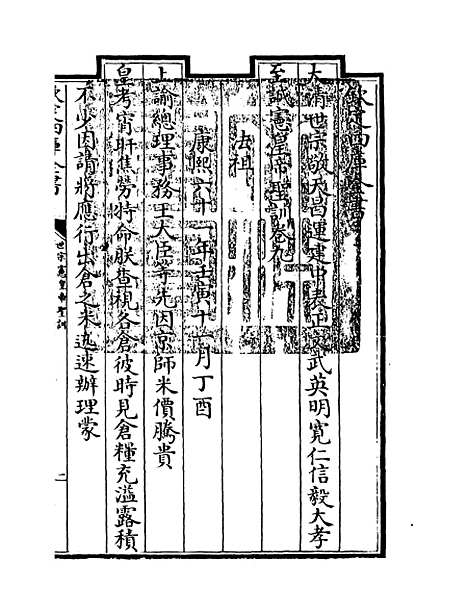 欽定四庫全書
大清世宗敬天昌運建中表正文武英明寬仁信毅大孝
至誠憲皇帝聖訓卷九
法祖
康熙六十一年壬寅十一月丁酉
上諭總理事務王大臣等先因京師米價騰貴
皇考宵旰焦勞特命朕查視各倉彼時見倉糧充溢露積
不少因請將應行出倉之米迅速辦理蒙
欽定四庫全書
世宗憲皇帝聖訓